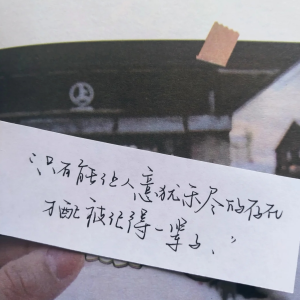 “只有能让人意犹未尽的存在
才配被记得一辈子。”